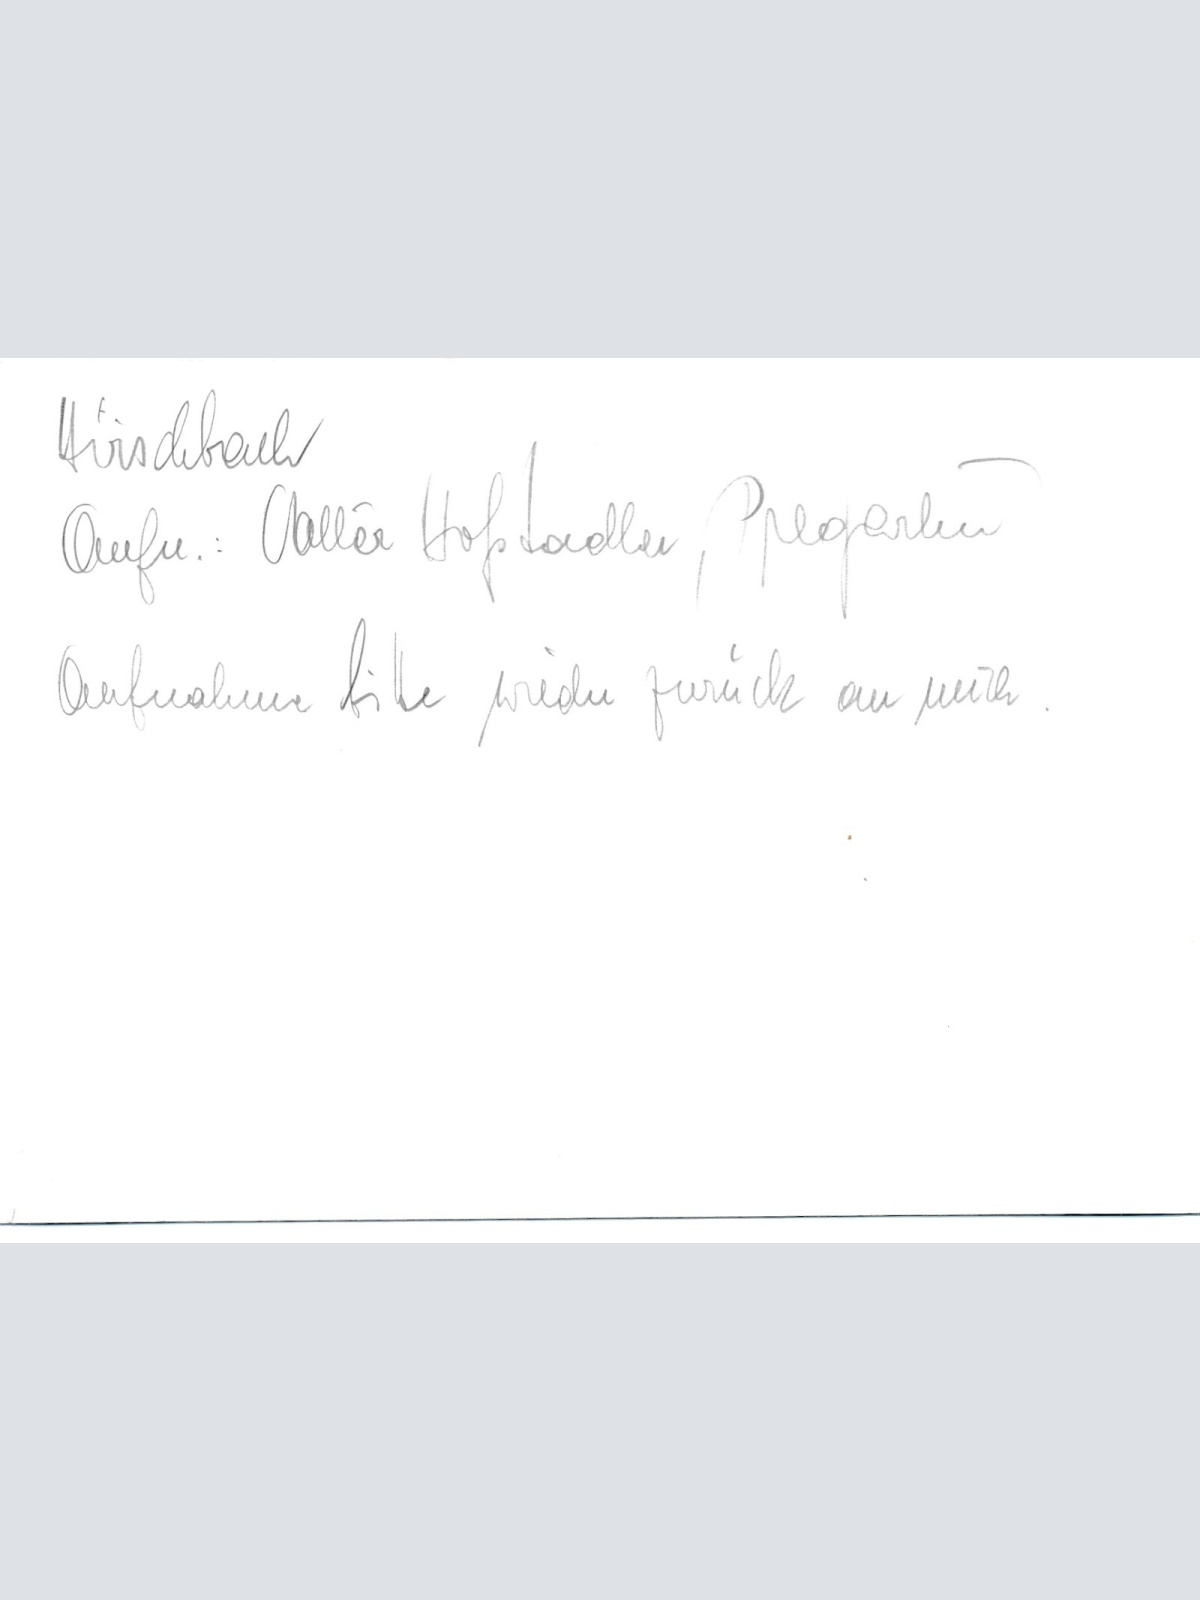 Hirschbach
Aufn.: Walter Hofstadler, Pregarten
Aufnahme bitte wieder zurück an mich.